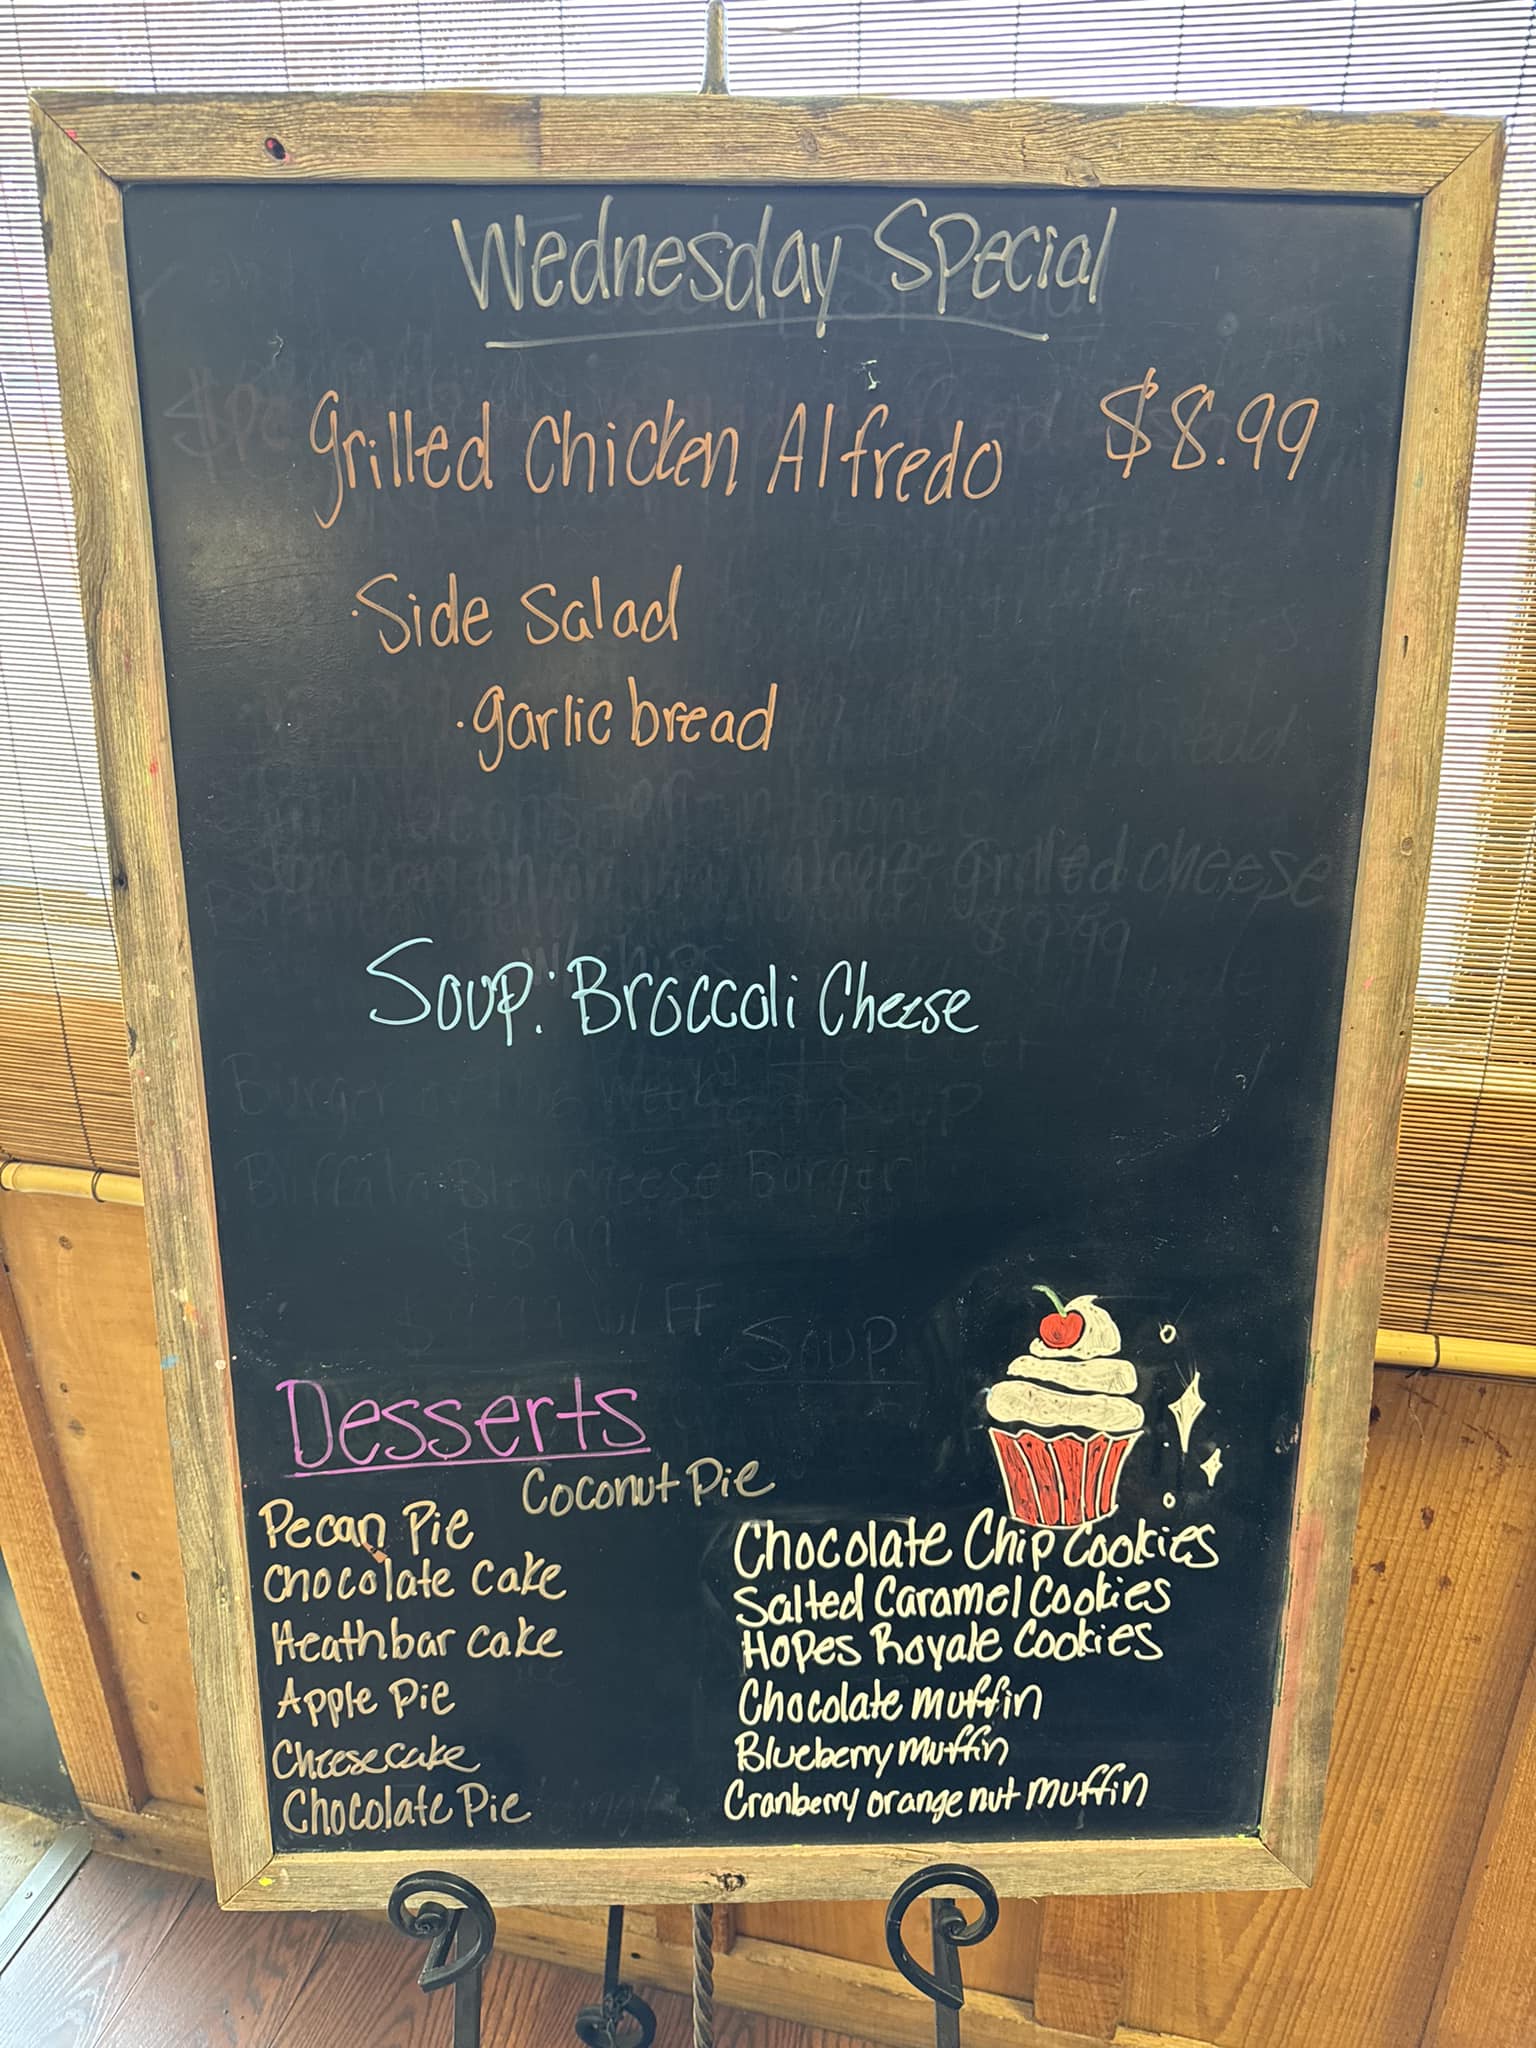 Wednesday Special
Grilled Chicken Alfredo $8.99
·Side Salad
·garlic bread
Soup: Broccoli Cheese
Desserts
Coconut Pie
Pecan Pie
Chocolate Cake
Heathbar Cake
Apple Pie
Cheesecake
Chocolate Pie
Chocolate Chip Cookies
Salted Caramel Cookies
Hopes Royale Cookies
Chocolate muffin
Blueberry muffin
Cranberry orange nut muffin
grilled cheese
Burger
Burger
$8.99
W/FF
Soup